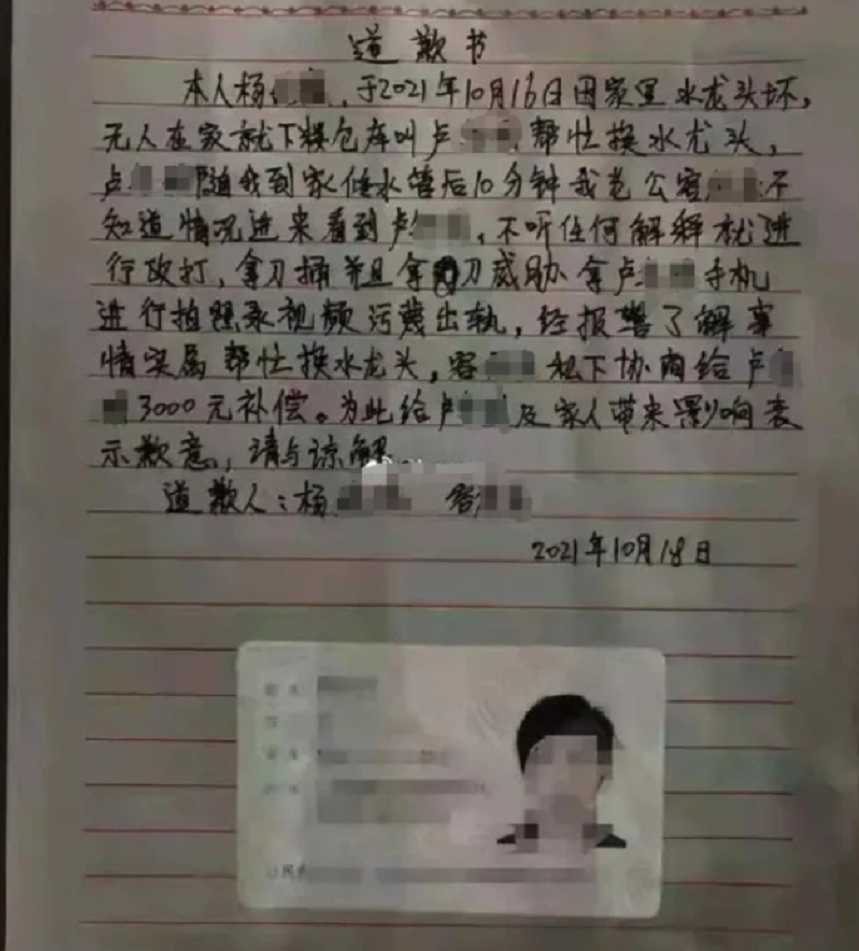 道歉书
本人杨,于2021年10月16日因家里水龙头坏,
无人在家就下楼仓库叫卢帮忙换水龙头,
卢随我到家修水管后10分钟我老公容不
知道情况进来看到卢,不听任何解释就进
行攻打,拿刀捅并且拿刀威胁拿卢手机
进行拍照录视频污蔑出轨,经报警了解事
情实属帮忙换水龙头,容私下协商给卢
3000元补偿。为此给卢及家人带来影响表
示歉意,请与谅解
道歉人:杨 容
2021年10月18日